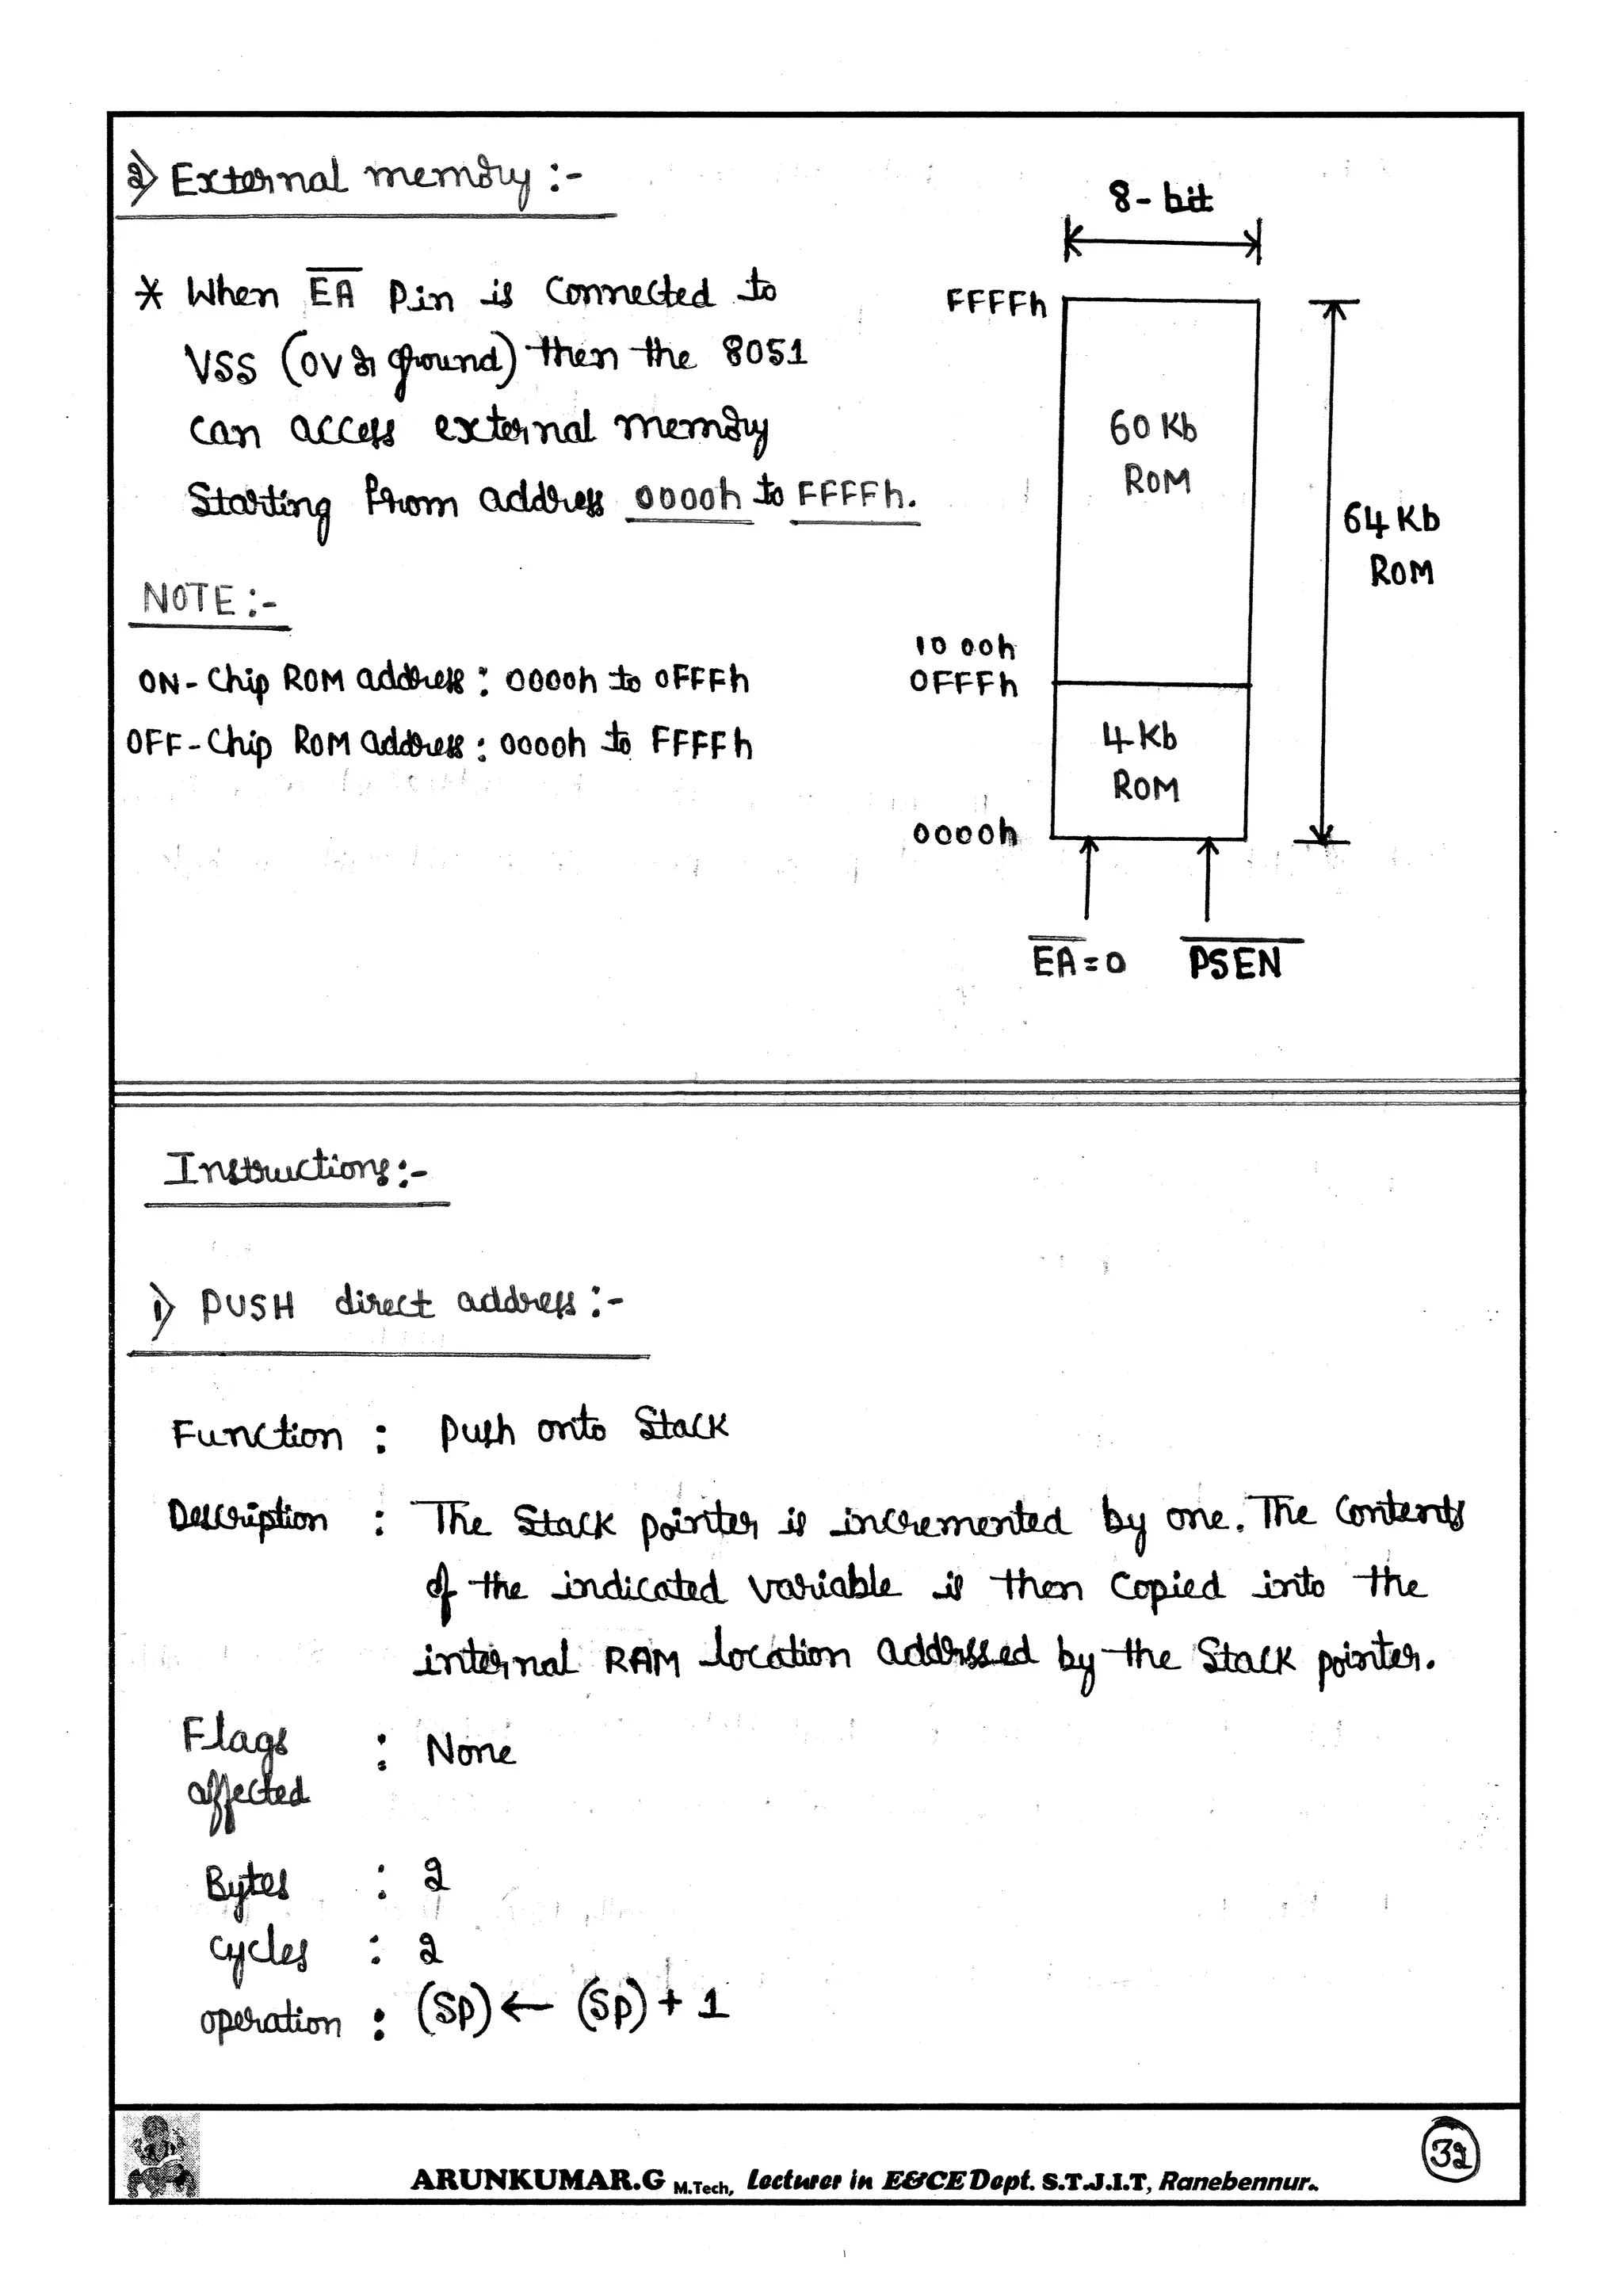 2) External memory :-
* When E̅A̅ Pin is Connected to
VSS (0V or ground) then the 8051
can access external memory
Starting from address 0000h to FFFFh.
NOTE :-
ON-Chip ROM address : 0000h to 0FFFh
OFF-Chip ROM address : 0000h to FFFFh
8-bit
FFFFh
60 Kb
ROM
64 Kb
ROM
1000h
0FFFh
4 Kb
ROM
0000h
E̅A̅ = 0 P̅S̅E̅N̅
Instructions :-
1) PUSH direct address :-
Function : Push onto Stack
Description : The Stack pointer is incremented by one. The Contents
of the indicated variable is then Copied into the
internal RAM location addressed by the Stack pointer.
Flags
affected : None
Bytes : 2
Cycles : 2
operation : (SP) ← (SP) + 1
ARUNKUMAR.G M.Tech, Lecturer in E&CE Dept. S.T.J.I.T, Ranebennur.
32